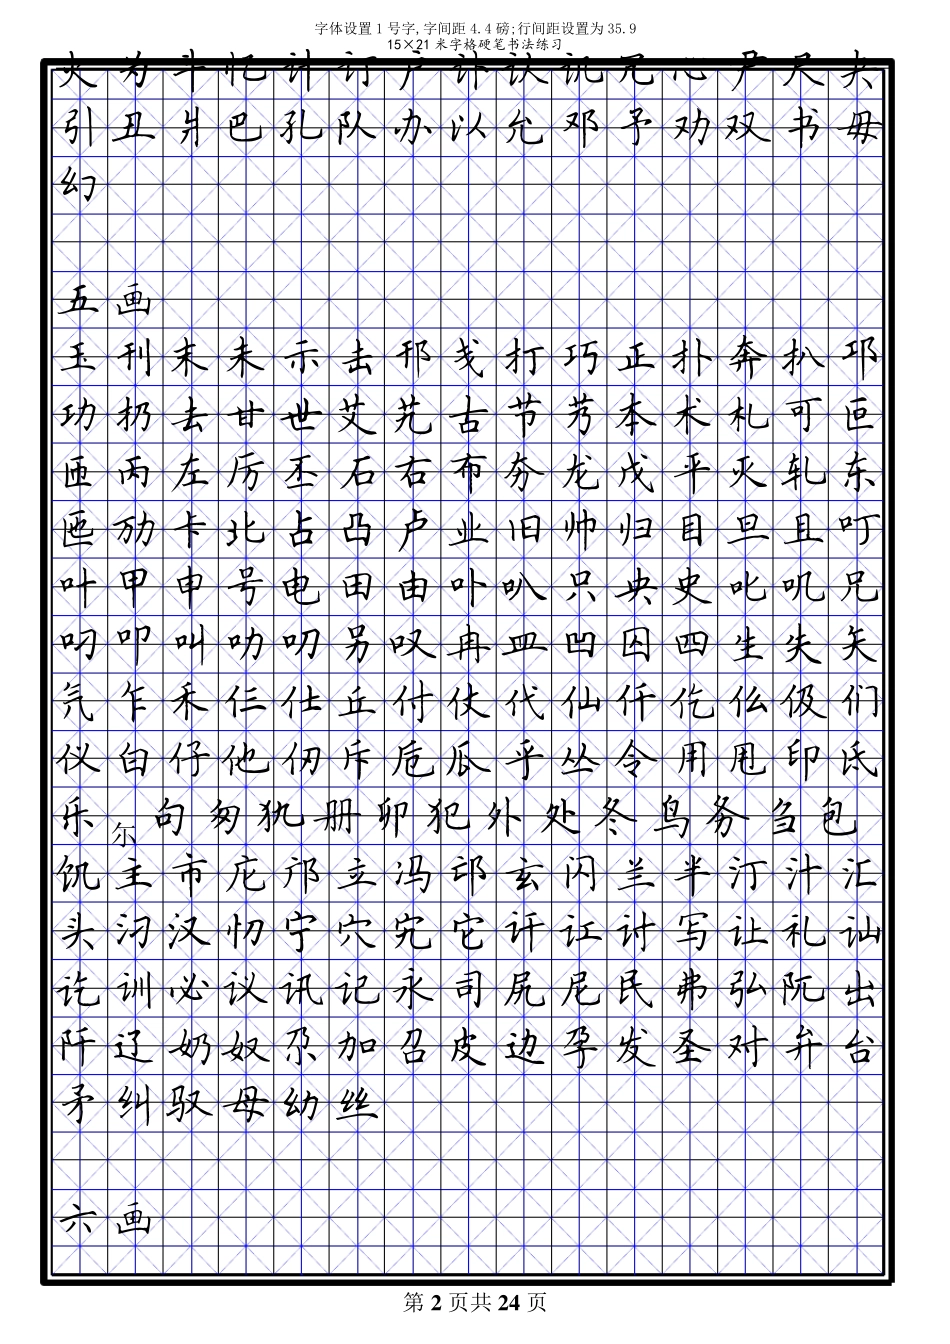 字体设置1号字,字间距4.4磅;行间距设置为35.9
15×21米字格硬笔书法练习
火 为 斗 忆 计 订 户 讣 认 讥 冗 心 尹 尺 夬
引 丑 爿 巴 孔 队 办 以 允 邓 予 劝 双 书 毋
幻
五 画
玉 刊 末 未 示 击 邗 戋 打 巧 正 扑 卉 扒 邛
功 扔 去 甘 世 艾 艽 古 节 艿 本 术 札 可 叵
匝 丙 左 厉 丕 石 右 布 夯 龙 戊 平 灭 轧 东
匜 劢 卡 北 占 凸 卢 业 旧 帅 归 目 旦 且 叮
叶 甲 申 号 电 田 由 卟 叭 只 央 史 叱 叽 兄
叼 叩 叫 叻 叨 另 叹 冉 皿 凹 囚 四 生 失 矢
氕 乍 禾 仨 仕 丘 付 仗 代 仙 仟 仡 仫 伋 们
仪 白 仔 他 仞 斥 卮 瓜 乎 丛 令 用 甩 印 氐
乐 尔 句 匆 犰 册 卯 犯 外 处 冬 鸟 务 刍 包
饥 主 市 庀 邝 立 冯 邙 玄 闪 兰 半 汀 汁 汇
头 汈 汉 忉 宁 穴 宄 它 讦 讧 讨 写 让 礼 讪
讫 训 必 议 讯 记 永 司 尻 尼 民 弗 弘 阮 出
阡 辽 奶 奴 尕 加 召 皮 边 孕 发 圣 对 弁 台
矛 纠 驭 母 幼 丝
六 画
第 2 页共 24 页